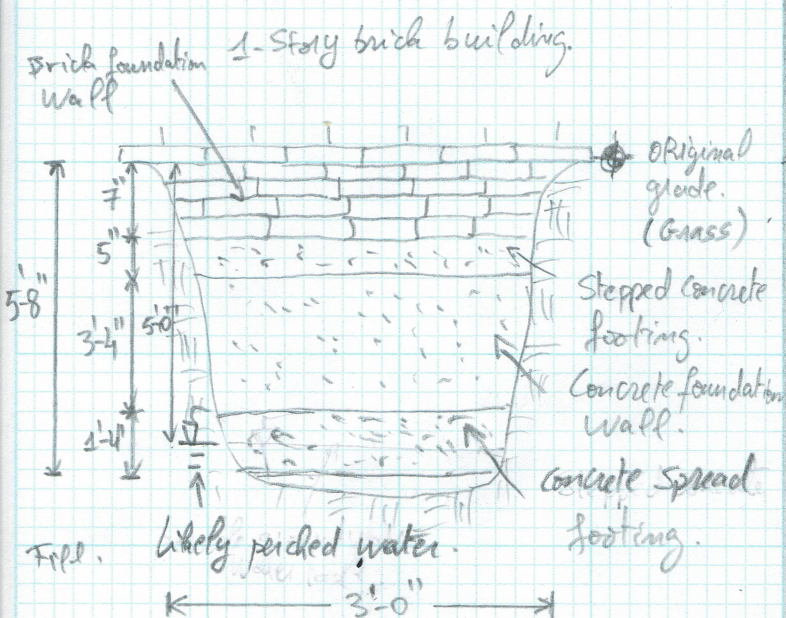 1-Story brick building.
Brick foundation
Wall
ORiginal
grade.
(Grass)
7"
5"
5'-8"
3'-4"
5'-0"
1'-4"
Stepped concrete
footing.
Concrete foundation
Wall.
Concrete spread
footing.
Likely perched water.
Fill.
3'-0"